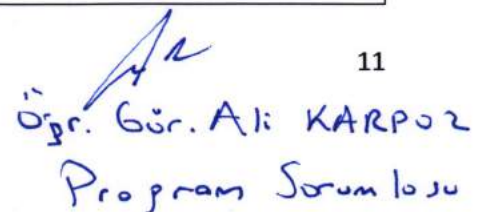 11
Öğr. Gör. Ali KARPUZ
Program Sorumlusu